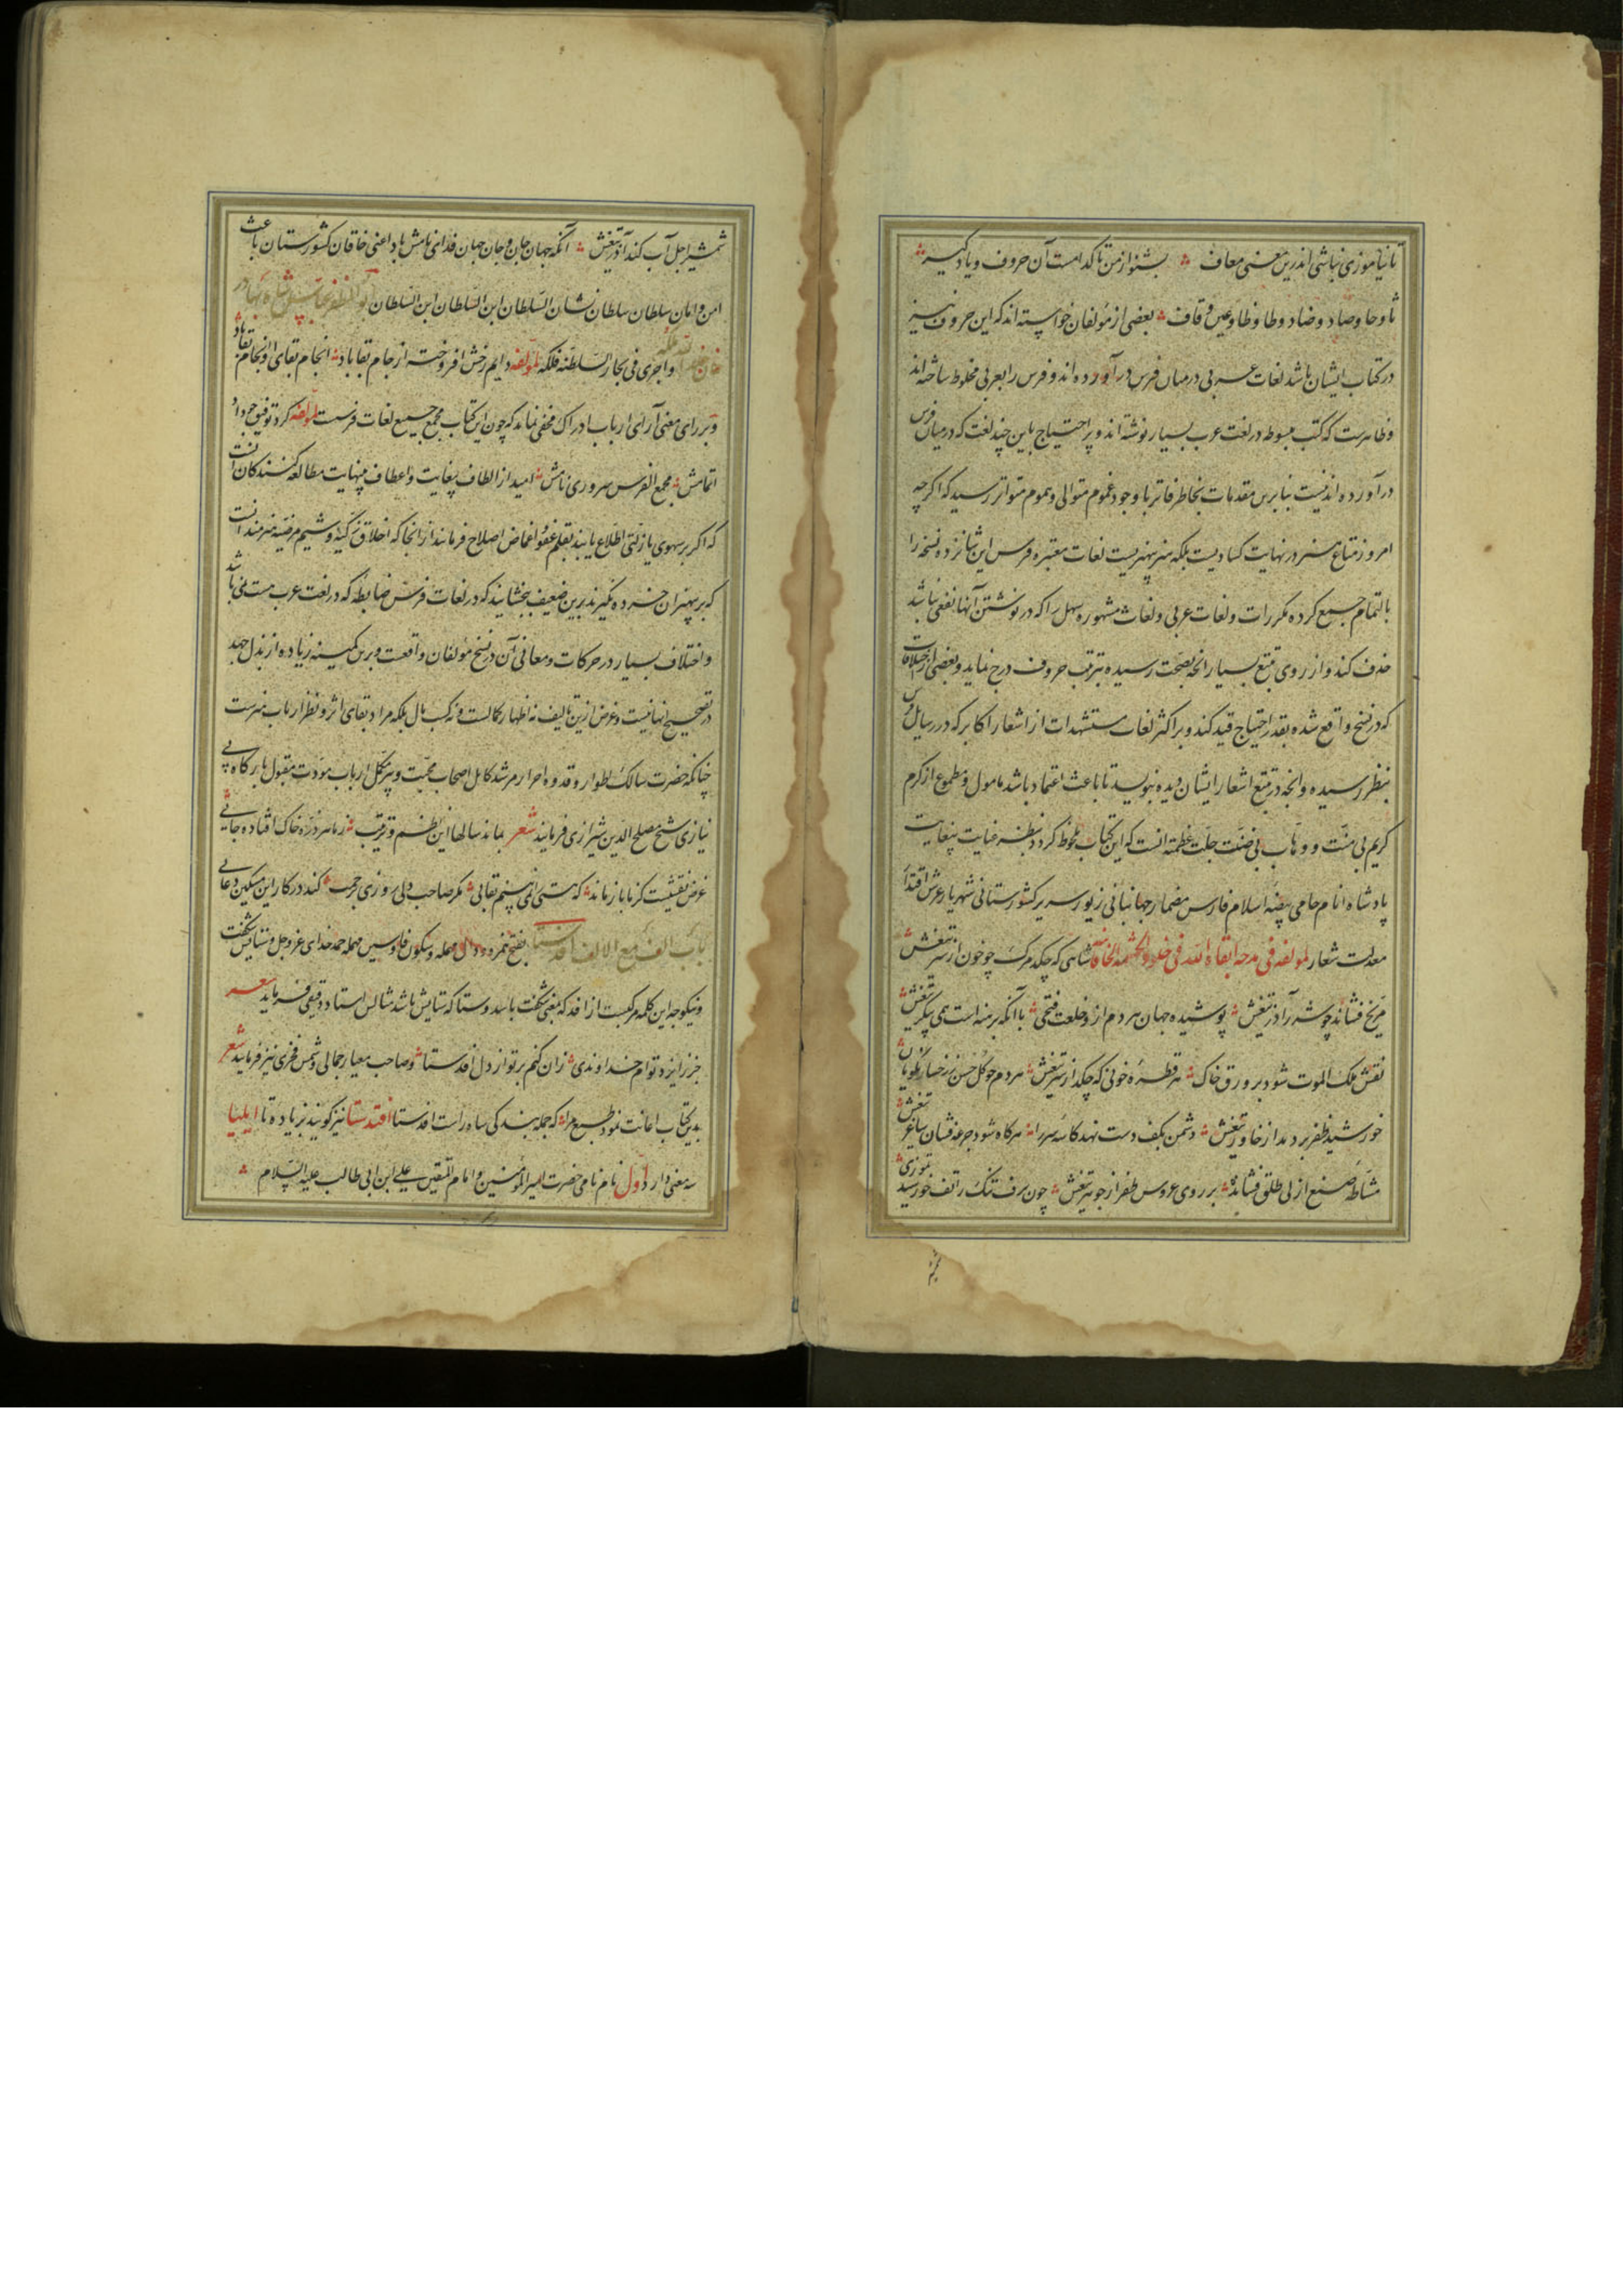 تا نیاموزی نباشی اندرین معنی معاف بشنو از من تا کدامست آن حروف و یاد گیر
ثا و حا و صاد و ضاد و طا و ظا و عین و قاف بعضی از مؤلفان خواسته اند که این حروف نیز
در کتاب ایشان باشد لغات عربی در میان فرس در آورده اند و فرس را بعربی مخلوط ساخته اند
و ظاهرست که کتب مبسوطه در لغت عرب بسیار نوشته اند و پر احتیاج باین چند لغت که در میان فرس
در آورده اند نیست بنابرین مقدمات بخاطر فاتر با وجود غموم متوالی و هموم متواتر رسید که اگر چه
امروز متاع هنر در نهایت کسادیست بلکه هنر بی‌هنریست لغات معتبره فرس این شانزده نسخه را
بالتمام جمیع کرده مکررات و لغات عربی و لغات مشهوره سهل را که در نوشتن آنها نفعی نباشد
حذف کند و از روی تتبع بسیار آنچه بصحت رسیده بترتیب حروف درج نماید و بعضی از اختلافات
که در نسخ واقع شده بقدر احتیاج قید کند و بر اکثر لغات مستشهدات از اشعار اکابر که در رسایل فرس
بنظر رسیده و آنچه در تتبع اشعار ایشان دیده بنویسد تا باعث اعتماد باشد مامول و مطموع از کرم
کریم بی منت و وهاب بی ضنت جلت عظمته انست که این کتاب ملحوظ گردد بنظر عنایت بیغایت
پادشاه انام حامی بیضه اسلام فارس مضمار جهانبانی زیور سریر کشورستانی شهریار عرش اقتدار
معدلت شعار لمولفه فی مدحه ابقاه الله فی خلود الحشمة الخاقانیه شاهی که چکد مرگ چو خون از سر تیغش
مریخ فشاند چو شرر آذر تیغش پوشیده جهان هر دم ازو خلعت فتحی با آنکه برهنه است همی پیکر تیغش
نقش ملک الموت شود بر ورق خاک هر قطره خونی که چکد از سر تیغش هر دم چو گل حسن ز رخسار نکویان
خورشید ظفر بردمد از خاور تیغش دشمن بکف دست نهد کاسه سر را هر گاه شود جرعه فشان ساغر تیغش
مشاطه صنع از لی طلق فشانده بر روی عروس ظفر از جوهر تیغش چون برف تنک از تف خورشید تموزی
شمشیر اجل آب کند آذر تیغش آنکه جهان جان و جان جهان فدای نامش باد اعنی خاقان کشورستان باعث
امن و امان سلطان سلطان نشان السلطان ابن السلطان ابن السلطان
و اجری فی بحار السلطنة فلکه لمولفه دایم رخش افروخته از جام بقا باد انجام بقای او نجام بقا باد
و بر رای معنی آرای ارباب ادراک مخفی نماند که چون این کتاب مجمع جمیع لغات فرست لمولفه کرد توفیق چو داد
اتمامش مجمع الفرس سروری نامش امید از الطاف بیغایت و اعطاف بینهایت مطالعه کنندگان آنست
که اگر بر سهوی یا زلتی اطلاع یابند بقلم عفو و اغماض اصلاح فرمایند از آنجا که اخلاق زکیه و شیم مرضیه هنرمندانست
که بر بی‌هنران خرده نگیرند برین ضعیف ببخشایند که در لغات فرس ضابطه که در لغت عرب هست نمی باشد
و اختلاف بسیار در حرکات و معانی آن در نسخ مؤلفان واقعست و برین کمینه زیاده از بذل جهد
در تصحیح نهایت نیست و غرض ازین تالیف نه اظهار کمالست و نه کسب مال بلکه مراد بقای اثر و نظر ارباب هنرست
چنانکه حضرت سالک اطوار و قدوه احرار مرشد کامل اصحاب محبت و پیر مکمل ارباب مودت مقبول بارگاه بی
نیازی شیخ مصلح الدین شیرازی فرمایند شعر بماند سالها این نظم و ترتیب ز ما هر ذره خاک افتاده جائی
غرض نقشیست کز ما باز ماند که هستی را نمی بینم بقایی مگر صاحب دلی روزی برحمت کند در کار این مسکین دعائی
باب الف مع الالف افدستا بفتح همزه و دال مهمله و سکون فا و سین مهمله حمد خدای عز و جل و ستایش شگفت
و نیکو چه این کلمه مرکبست از افد که بمعنی شگفت باشد و ستا که ستایش باشد مثالش استاد دقیقی فرماید شعر
جز از ایزد توام خداوندی زان کنم بر تو از دل افدستا و صاحب معیار جمالی و شمس فخری نیز فرماید شعر
بدین کتاب اعانت نمود طبع مرا که جمله بندگی شاه راست افدستا افتدستا نیز گویند بزیاده تا ایلیا
سه معنی دارد اول نام نامی حضرت امیر المؤمنین و امام المتقین علی ابن ابی طالب علیه السلام